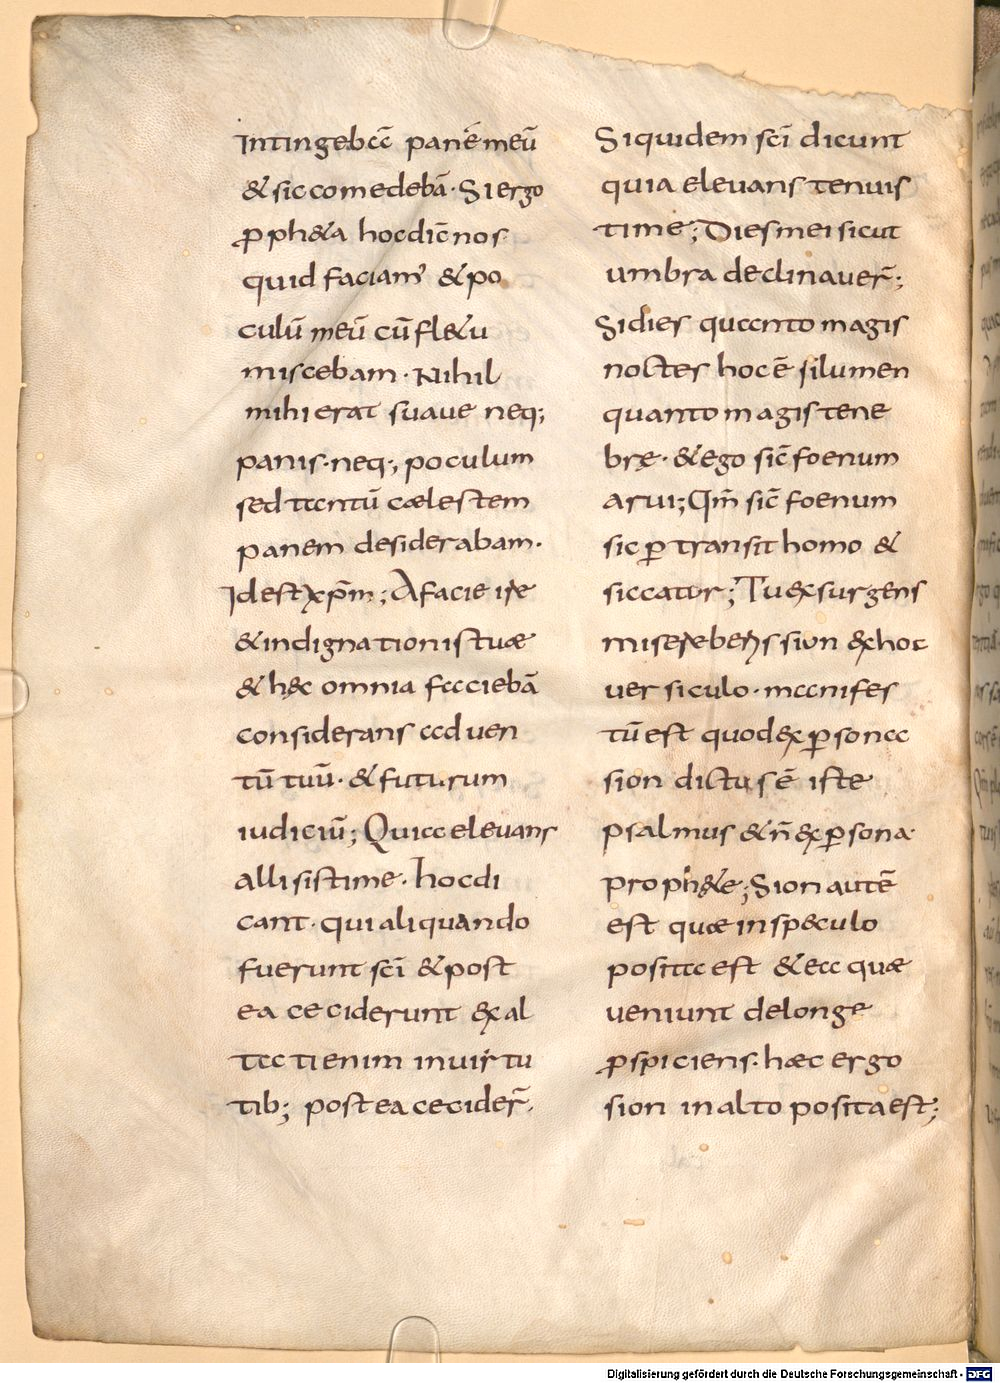 Intingebā panē meū
& sic comedebā· Si ergo
ꝓph&a hoc dic̄ nos
quid faciam' & po
culū meū cū fl&u
miscebam· Nihil
mihi erat suaue neq;
panis· neq·, poculum
sed tantū cælestem
panem desiderabam·
Id est xp̄m; A facie ire
& indignationis tuæ
& hęc omnia faciebā
considerans aduen
tū tuū· & futurum
iudiciū; Quia eleuans
allisisti me· hoc di
cant· qui aliquando
fuerunt sc̄i & post
ea ceciderunt &x al
tati enim in uirtu
tib; postea cecider̄·
Si quidem sc̄i dicunt
quia eleuans tenuis
ti me; Dies mei sicut
umbra declinauer̄;
Si dies quanto magis
noctes hoc ē si lumen
quanto magis tene
brę· & ego sic̄ foenum
arui; Qm̄ sic̄ foenum
sic ꝑ transit homo &
siccatur; Tu &xsurgens
misereberis sion &x hoc
uersiculo· manifes
tū est quod &x ꝑsona
sion dictus ē iste
psalmus & n̄ &x ꝑsona
proph&ę; Sion autē
est quæ in sp&culo
posita est & ea quæ
ueniunt de longe
ꝑspiciens· hæc ergo
sion in alto posita est;
Digitalisierung gefördert durch die Deutsche Forschungsgemeinschaft - DFG